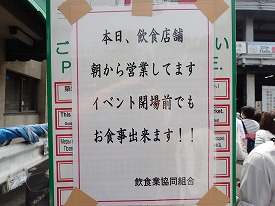 本日、飲食店舗
朝から営業してます
イベント開場前でも
お食事出来ます！！
飲食業協同組合